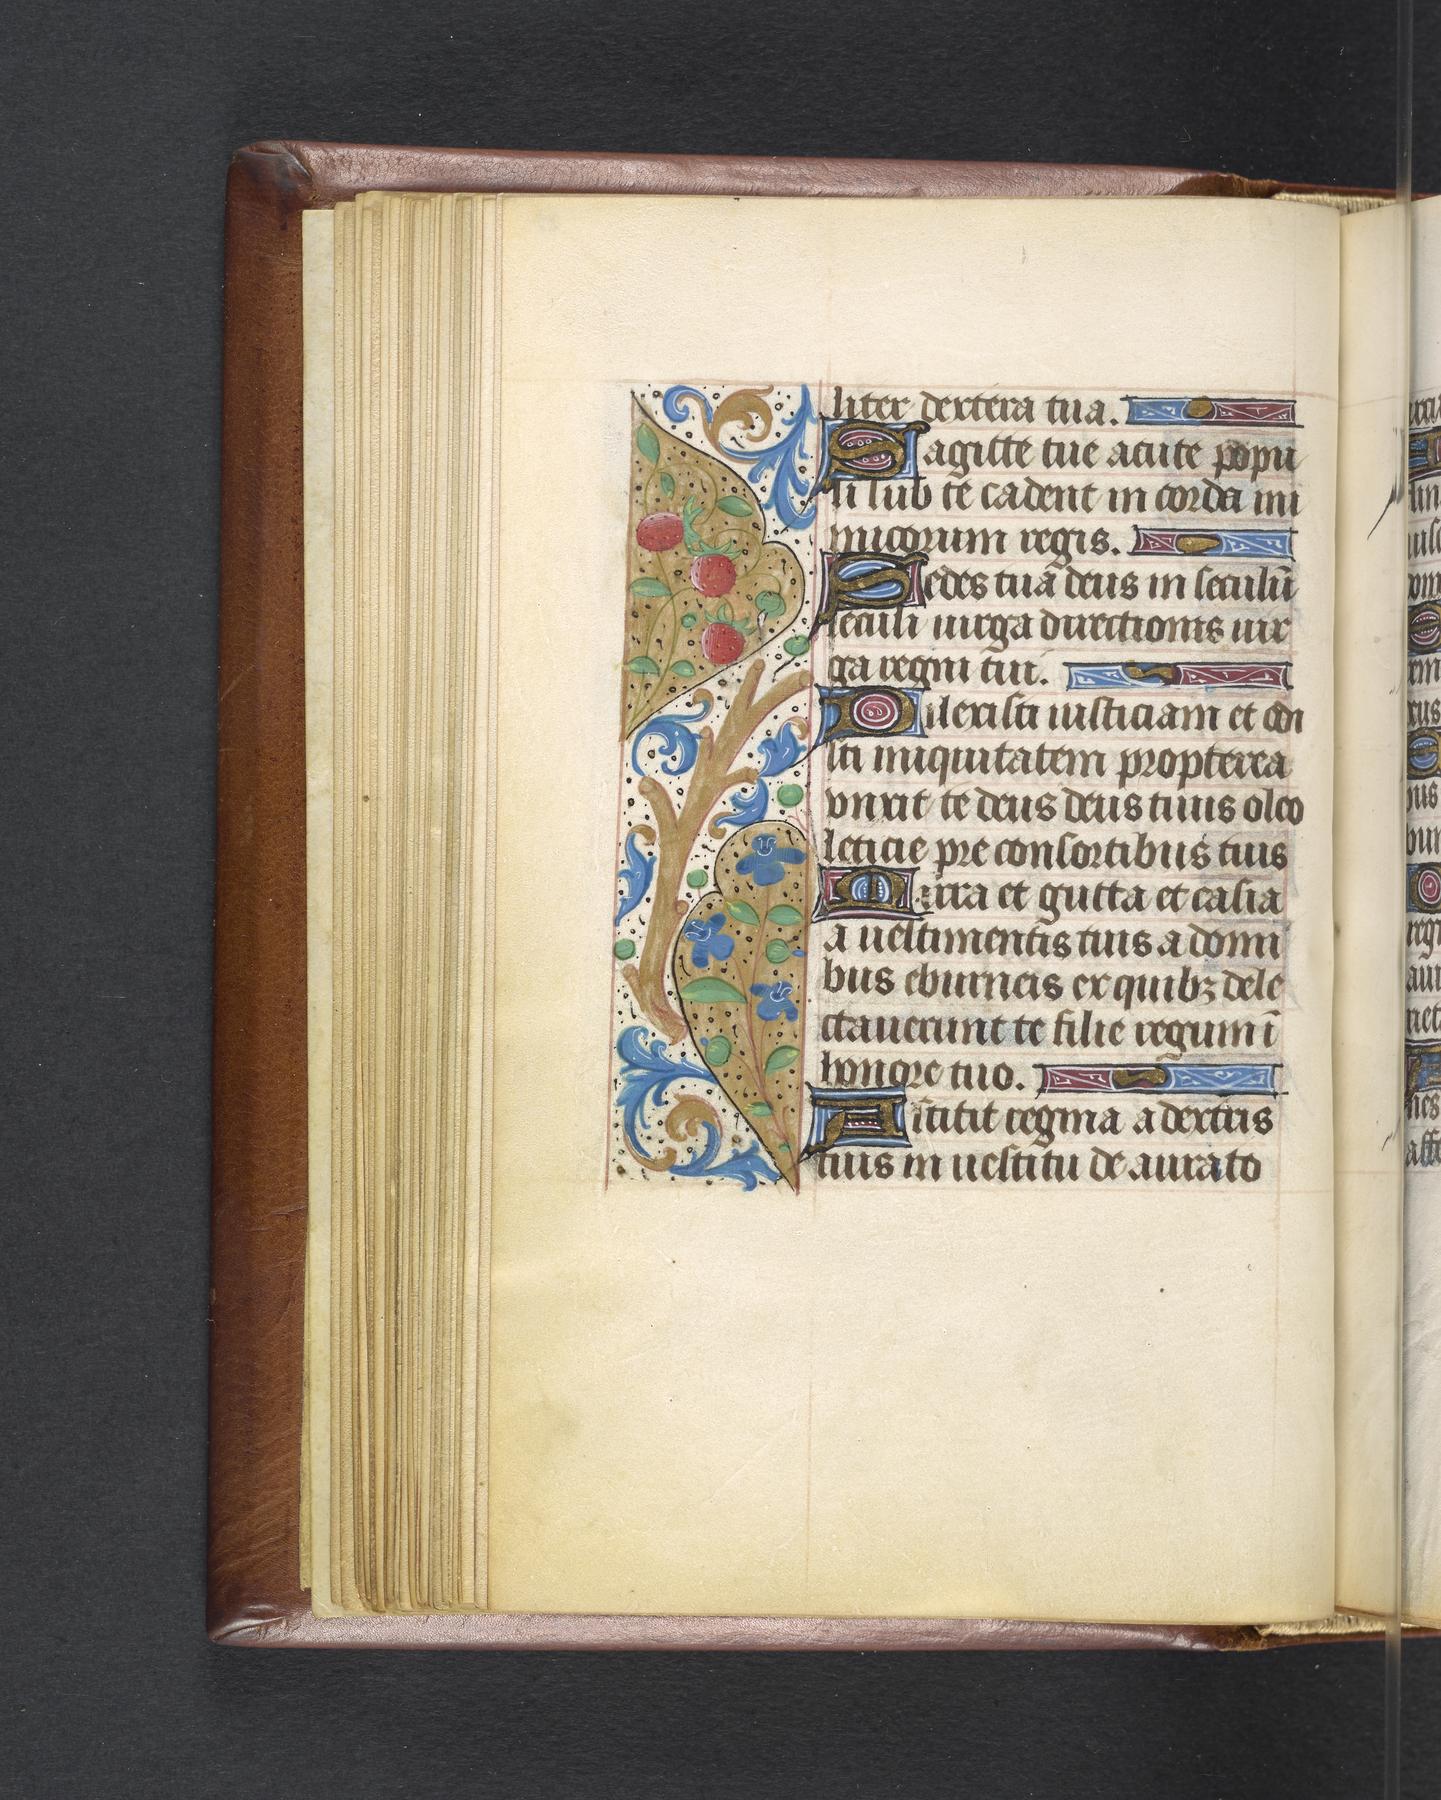 liter dextera tua.
Sagitte tue acute popu
li sub te cadent in corda ini
micorum regis.
Sedes tua deus in seculū
seculi uirga directionis uir
ga regni tui.
Dilexisti iusticiam et odi
sti iniquitatem propterea
vnxit te deus deus tuus oleo
leticie pre consortibus tuis
Mirra et gutta et casia
a uestimentis tuis a domi
bus eburneis ex quibꝫ dele
ctauerunt te filie regum ī
honore tuo.
Astitit regina a dextris
tuis in uestitu de aurato